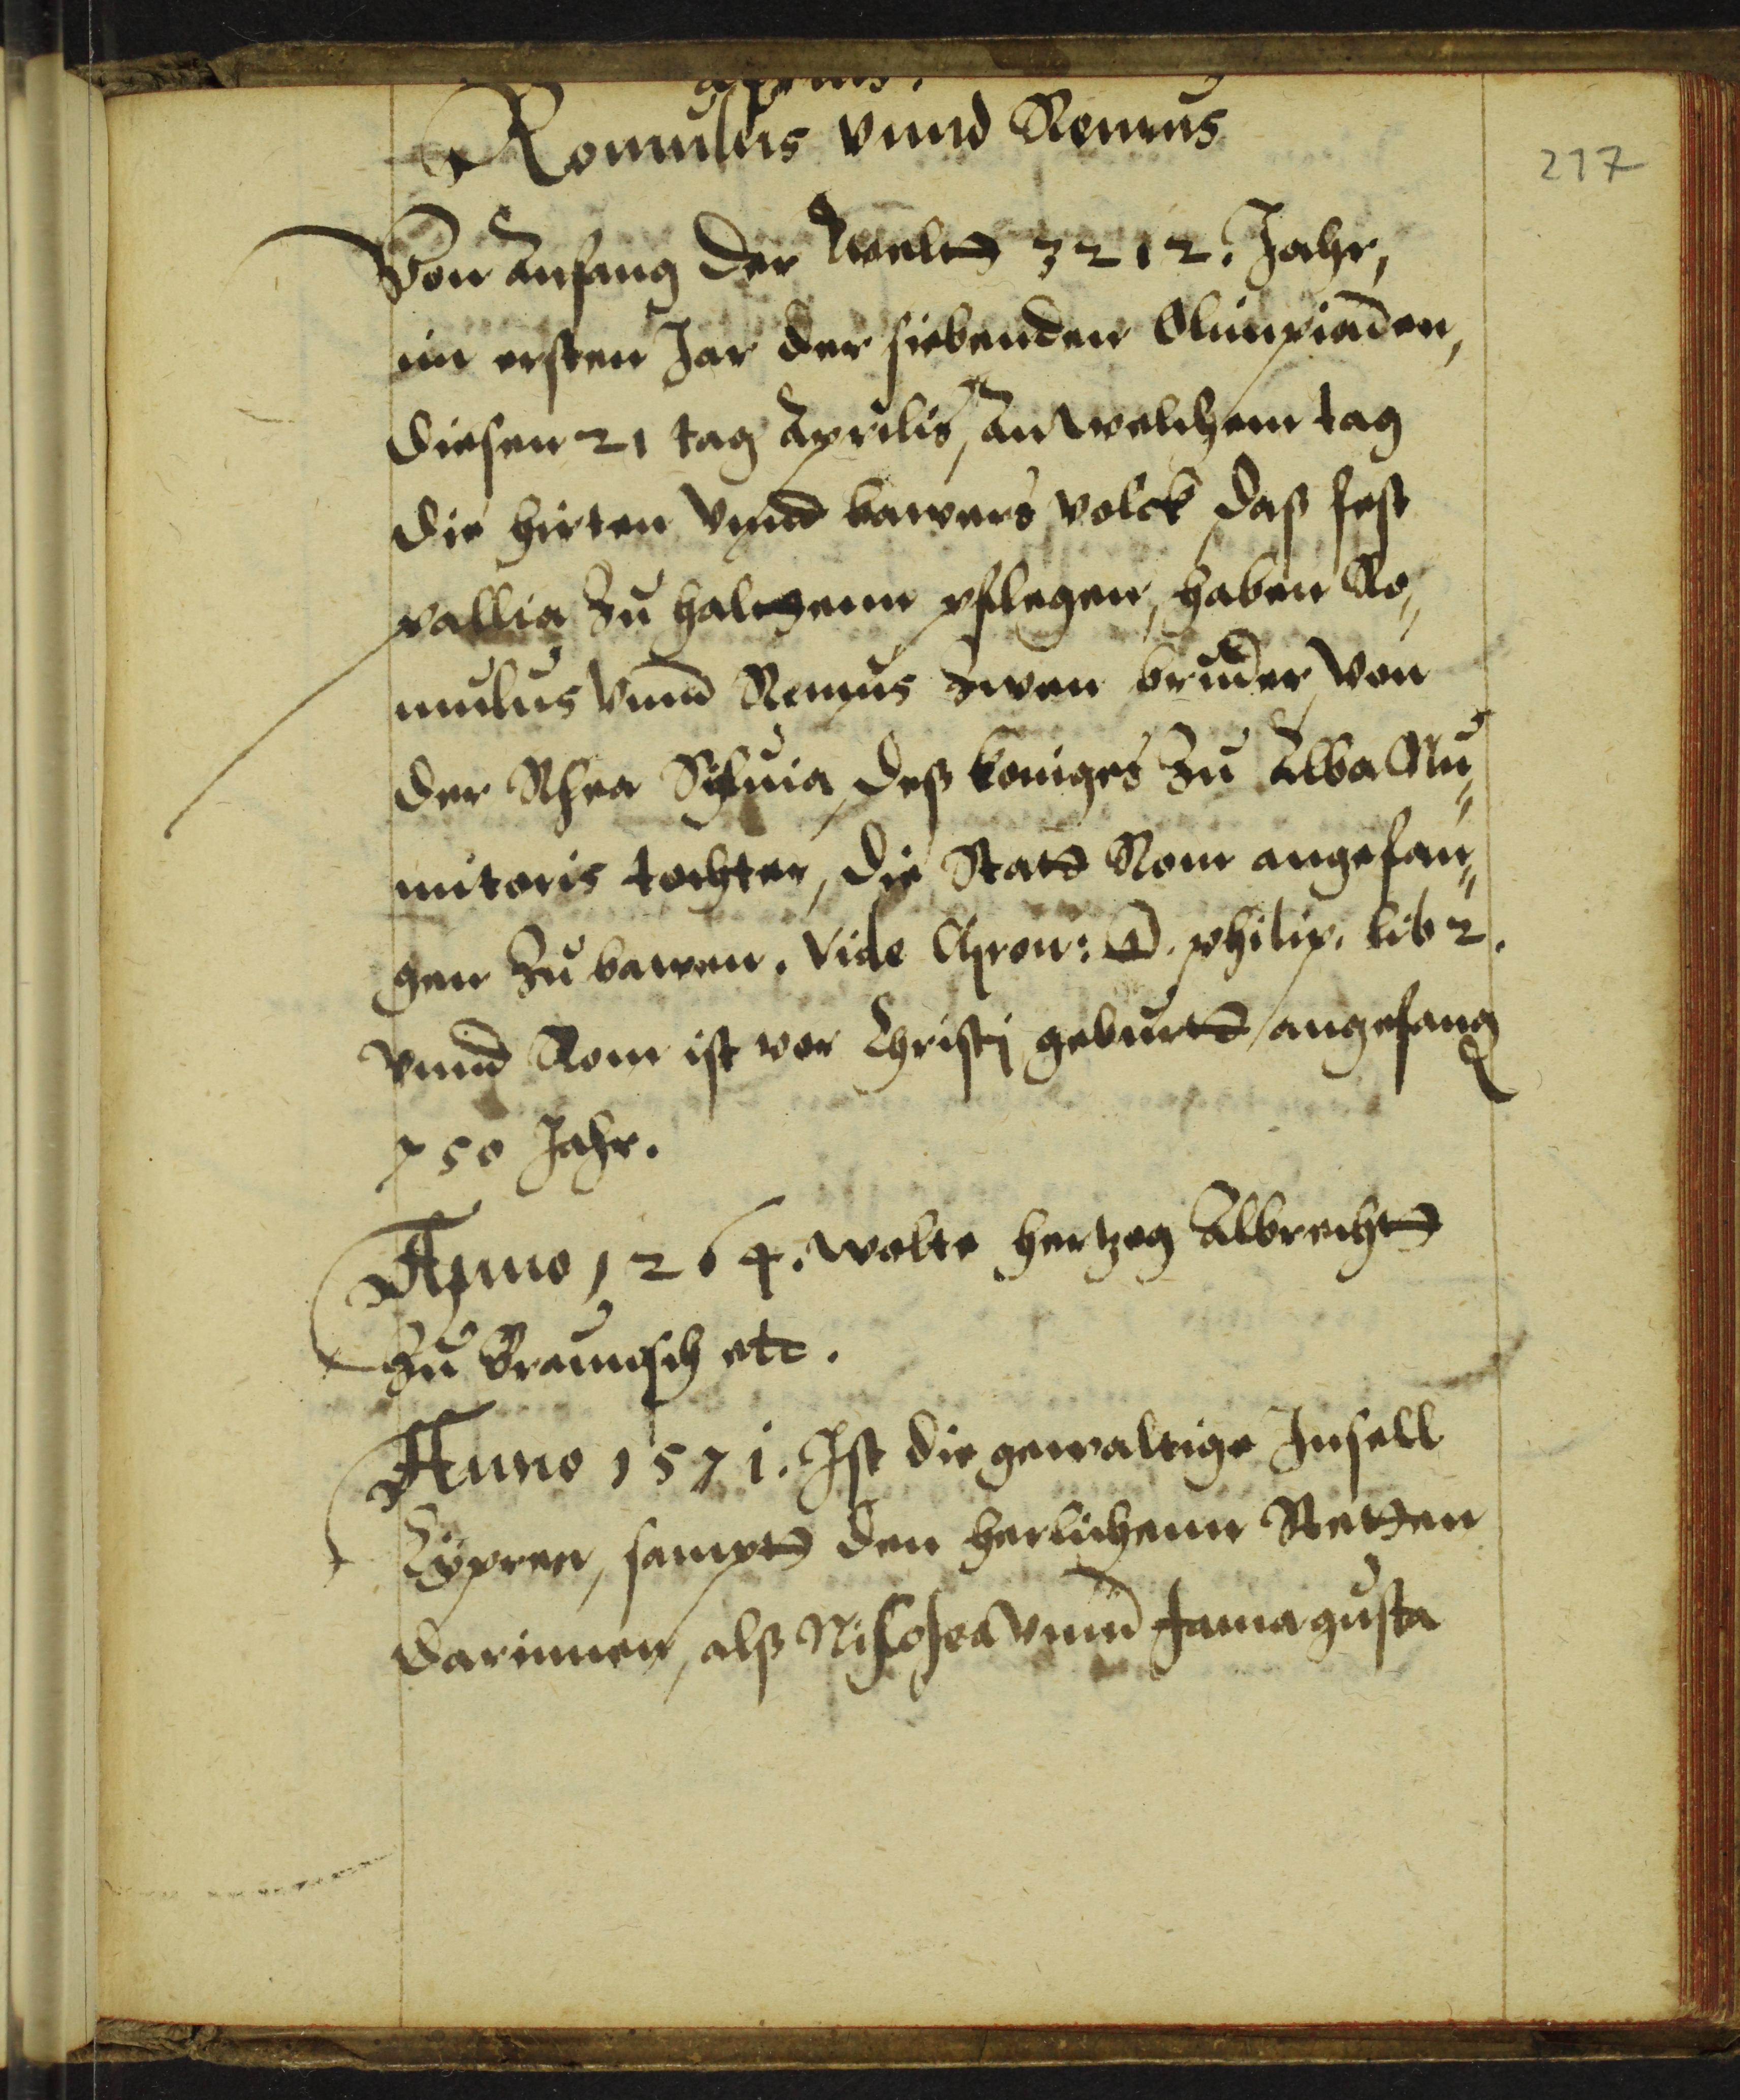 Aprilis.
Romulus vnnd Remus
217
Von Anfang der Weltt 3212. Jahr,
im ersten Jar der siebenden Olimpiaden,
diesen 21 tag Aprilis, An welchem tag
die hirten vnnd bawers volck daß fest
pallia zu haltzenn pflegen, haben Ro„
mulus vnnd Remus zwen bruder von
der Rhea Sylvia, deß koniges zu Alba Nu„
mitoris tochter, die Statt Rom angefan„
gen zu bawen. Vide Chron: D. philip. lib 2.
vnnd Rom ist vor Christj geburtt angefang
750 Jahr.
Anno 1264. wolte hertzog Albrechtt
zu Braunsch etc.
Anno 1571. Ist die gewaltige Insell
Cypren, samptt den herlichenn Stetten
darinnen, alß Nicosea vnnd Famagusta